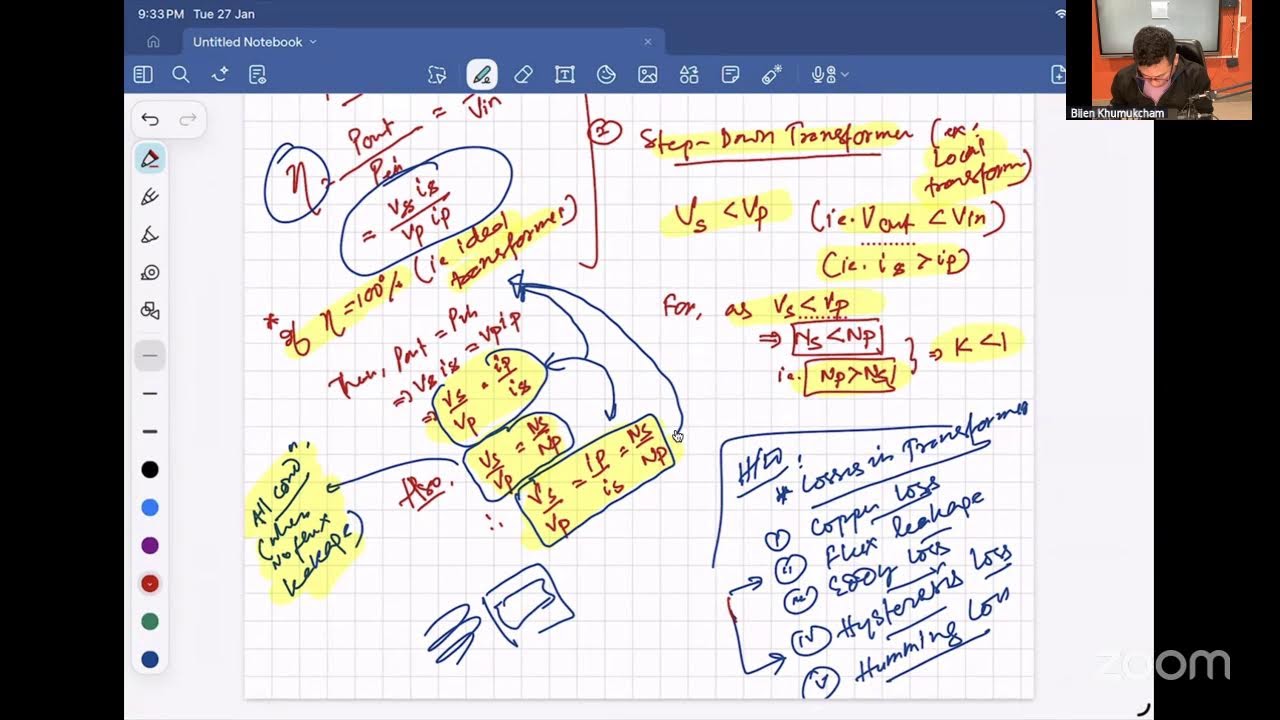 9:33 PM Tue 27 Jan
Untitled Notebook
Bijen Khumukcham
η = Pout / Pin = / Vin
= Vs is / Vp ip
* If η = 100% (ie ideal transformer)
Then, Pout = Pin
=> Vs is = Vp ip
=> Vs / Vp = ip / is
Also, Vs / Vp = Ns / Np
∴ Vs / Vp = ip / is = Ns / Np
All condn,
(when
No flux
leakage)
② Step-Down Transformer (ex:
Local
transform)
Vs < Vp (ie. Vout < Vin)
(ie. is > ip)
For, as Vs < Vp
⇒ Ns < Np
ie. Np > Ns
⇒ K < 1
H/W :
* Losses in Transformer
(i) Copper Loss
(ii) Flux leakage
(iii) Eddy Loss
(iv) Hysteresis Loss
(v) Humming Loss
zoom